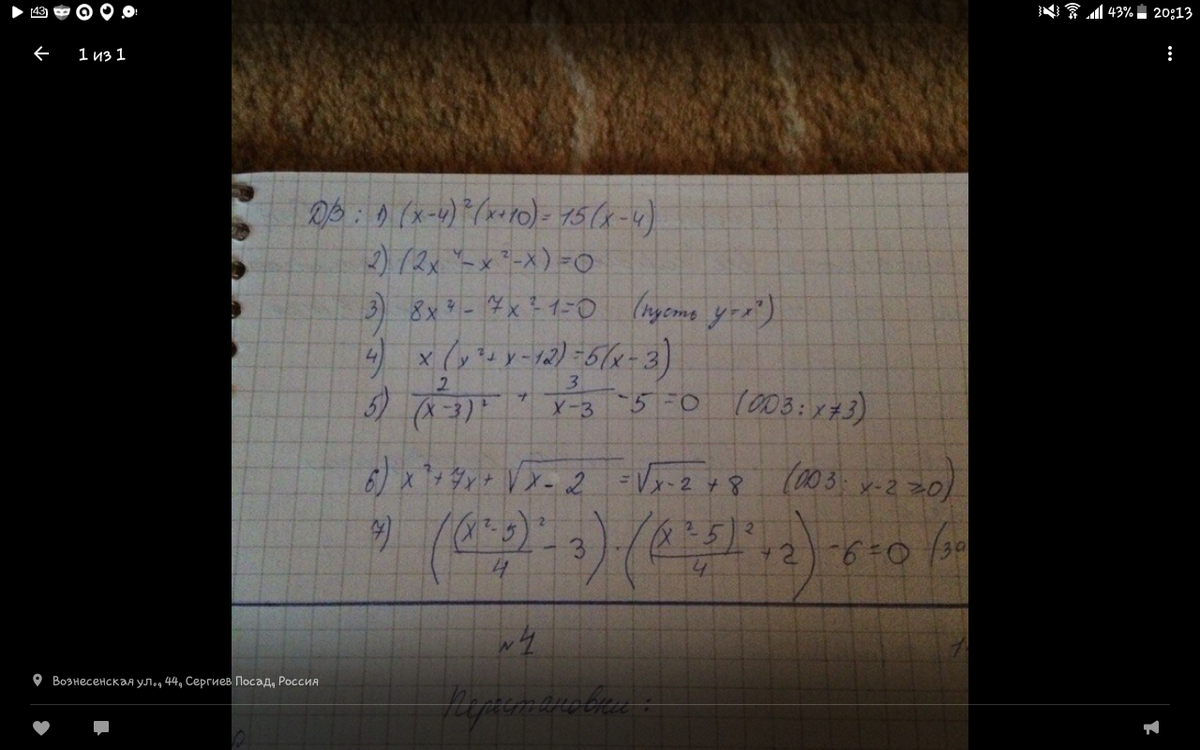 43 43% 20:13
1 из 1
Д/З: 1) (x-4)²(x+10)=15(x-4)
2) (2x⁴-x²-x)=0
3) 8x⁴-7x²-1=0 (пусть y=x²)
4) x(x²+x-12)=5(x-3)
5) 2/(x-3)² + 3/(x-3) -5=0 (ОДЗ: x≠3)
6) x²+7x+√(x-2)=√(x-2)+8 (ОДЗ: x-2≥0)
7) ((x²-5)²/4 - 3)·((x²-5)²/4 +2) -6=0 (за
№1
Вознесенская ул., 44, Сергиев Посад, Россия
Перестановки: